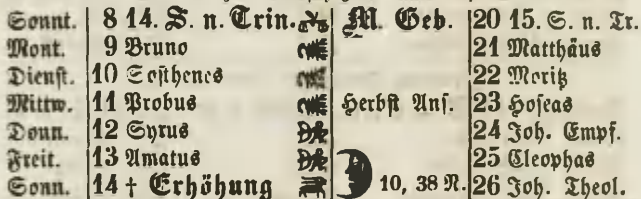 Sonnt. 8 14. S. n. Trin. M. Geb. 20 15. S. n. Tr.
Mont. 9 Bruno 21 Matthäus
Dienst. 10 Sosthenes 22 Moritz
Mittw. 11 Probus Herbst Anf. 23 Hoseas
Donn. 12 Syrus 24 Joh. Empf.
Freit. 13 Amatus 25 Cleophas
Sonn. 14 † Erhöhung 10, 38 N. 26 Joh. Theol.